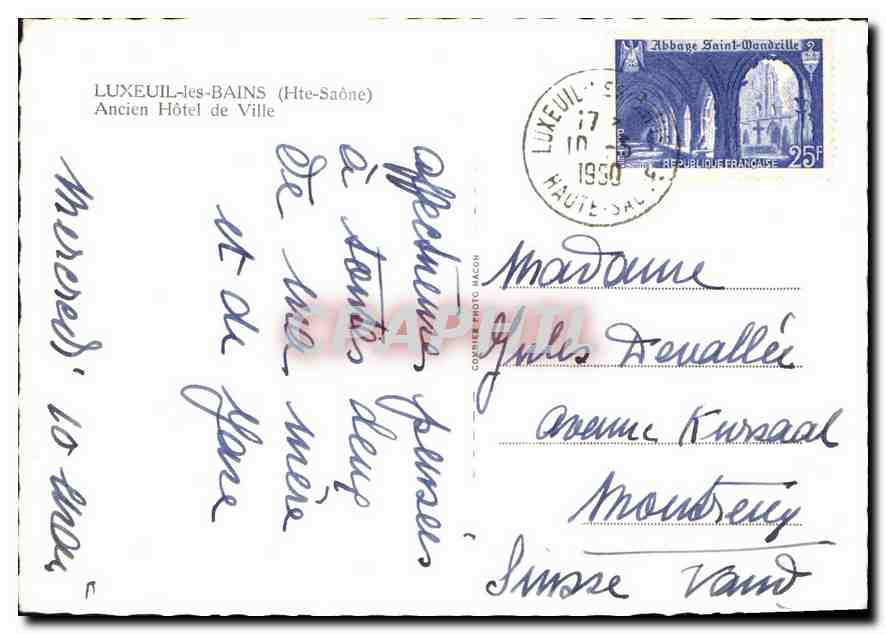 LUXEUIL-les-BAINS (Hte-Saône)
Ancien Hôtel de Ville
Mercredi 10
affectueuses pensées
à toutes deux
de ma mère
et de
COMBIER PHOTO MACON
CPAPHIL
Abbaye Saint-Wandrille
REPUBLIQUE FRANÇAISE
25F
LUXEUIL-LES-BAINS
17
10
1950
HAUTE-SAONE
Madame
Jules Devallée
Avenue Kursaal
Montreux
Suisse Vaud